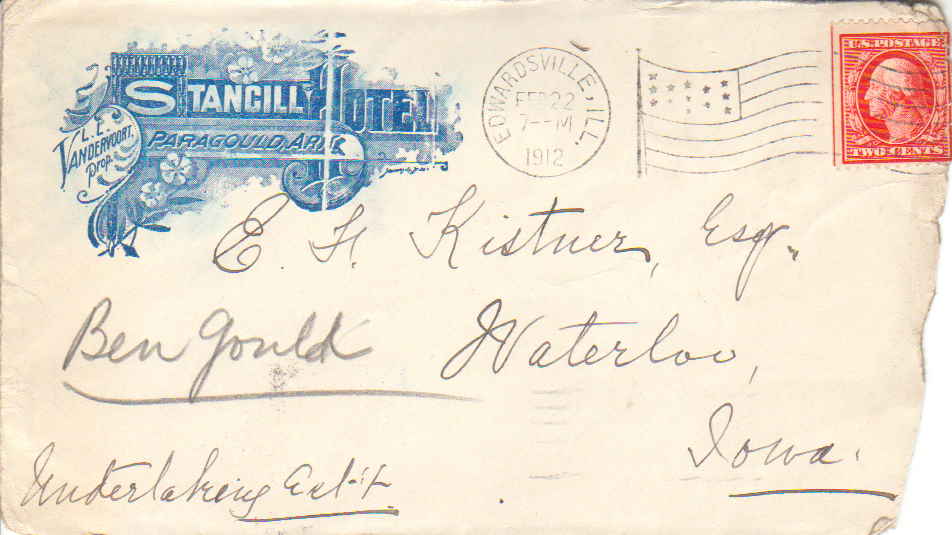 STANCILL HOTEL
L.E.
VANDERVOORT,
Prop.
PARAGOULD, ARK.
EDWARDSVILLE, ILL.
FEB 22
7-- M
1912
U.S. POSTAGE
TWO CENTS
E. H. Kistner, Esq.
Ben Gould
Waterloo,
Iowa.
Undertaking Est't